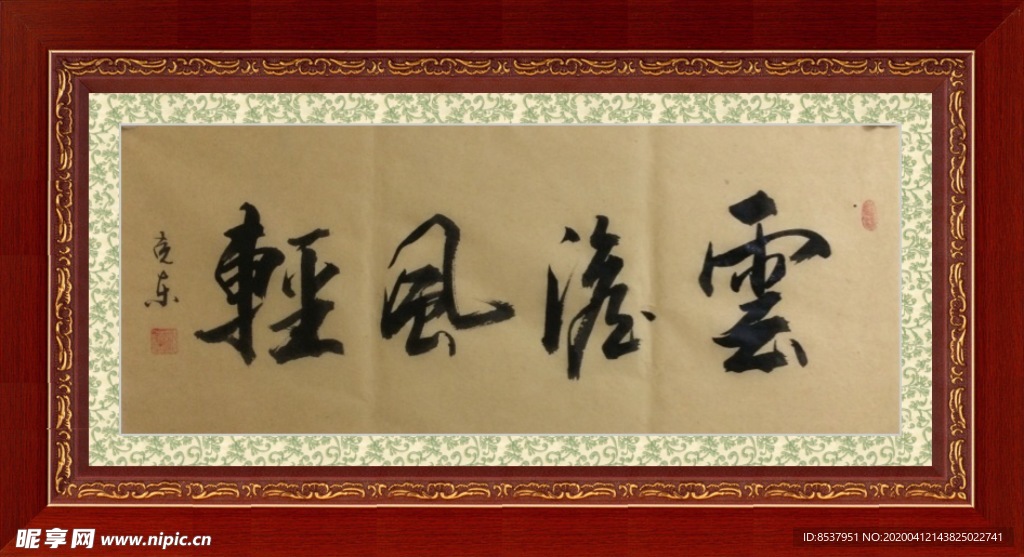 雲澹風輕
克东
昵享网 www.nipic.cn
ID:8537951 NO:20200412143825022741